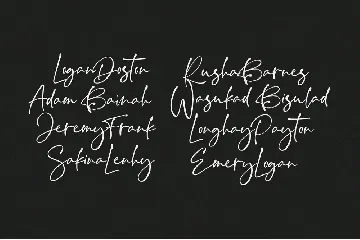 LoganDoston
Adam Bainah
JeremyFrank
SakinaLenhy
RushaBarnes
Wasukad Bisulad
LonghayPayton
EmeryLogan